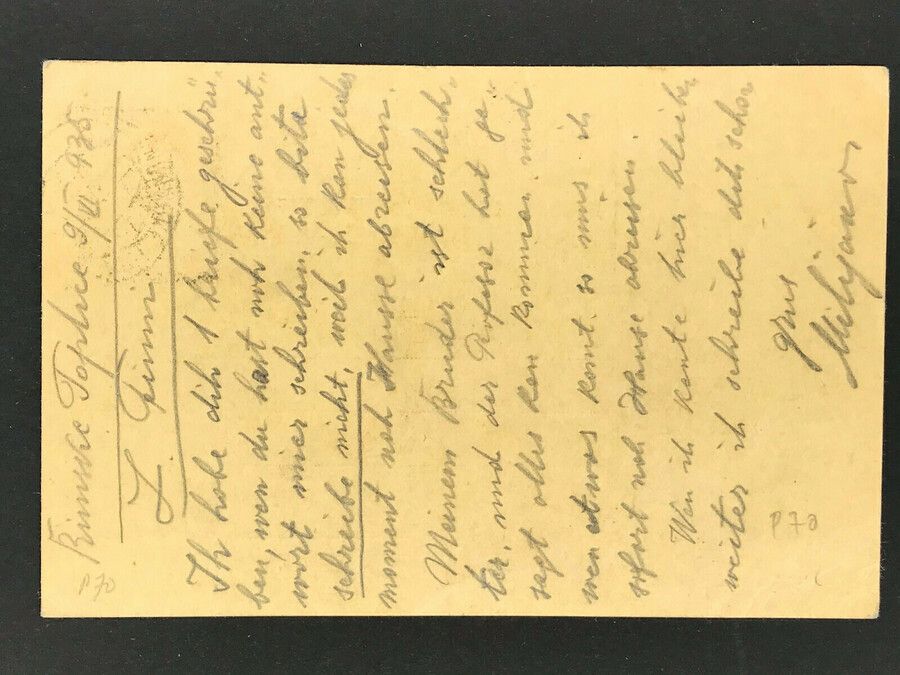 Rimske Toplice 9/VII. 935.
L. Finni
Ih habe dih 1 kaufe geschri„
ben, wen du hast noh keine ant„
wort mier schreiben, so bite
schreibe nicht, weil ih kan jedes
moment nah Hausse abreisen.
Meinem Bruder ist schlech„
ter, und der Professe hat ge„
segt alles kan kommen, und
wen etwas komt so muss ih
sofort nah Hause abreisen
Wen ih konte hier bleibe
weiter ih schreibe dih schon
grus
P70
P70